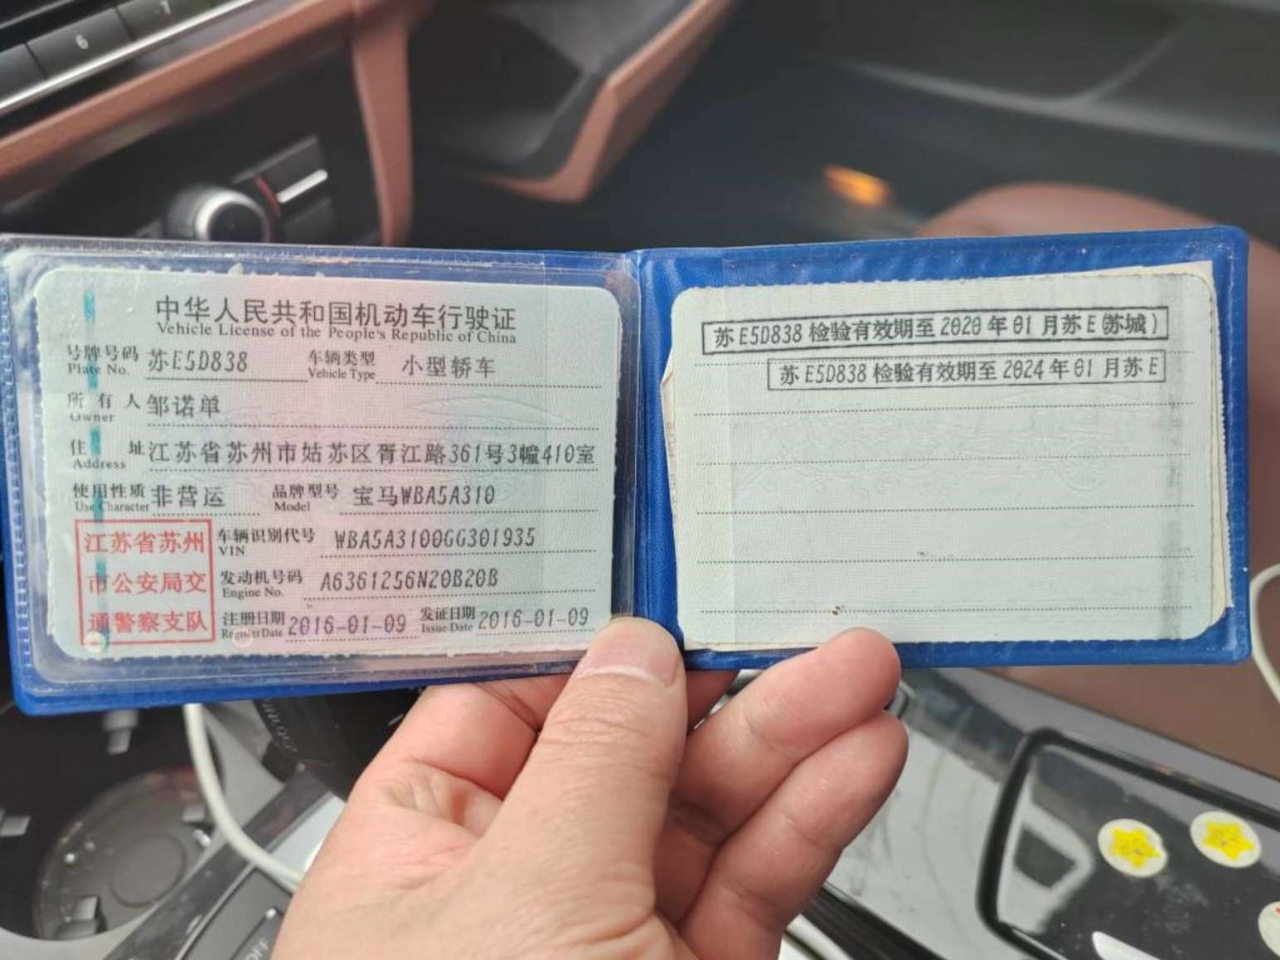 6
7
中华人民共和国机动车行驶证
Vehicle License of the People's Republic of China
号牌号码 苏E5D838 车辆类型 小型轿车
Plate No. Vehicle Type
所有人 邹诺单
Owner
住址 江苏省苏州市姑苏区胥江路361号3幢410室
Address
使用性质 非营运 品牌型号 宝马WBA5A310
Use Character Model
江苏省苏州
市公安局交
通警察支队
车辆识别代号 WBA5A3100GG301935
VIN
发动机号码 A6361256N20B20B
Engine No.
注册日期 2016-01-09 发证日期 2016-01-09
Register Date Issue Date
苏E5D838检验有效期至2020年01月苏E(苏城)
苏E5D838检验有效期至2024年01月苏E